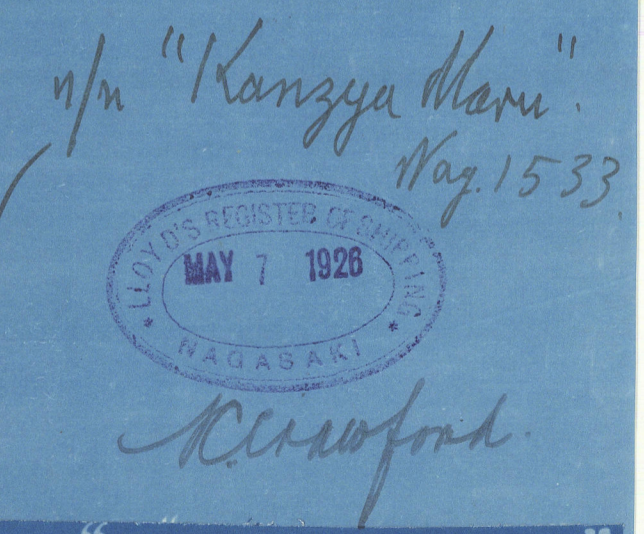 n/n "Kanzya Maru".
Nag. 1533.
LLOYD'S REGISTER OF SHIPPING
MAY 7 1926
* NAGASAKI *
Crawford.